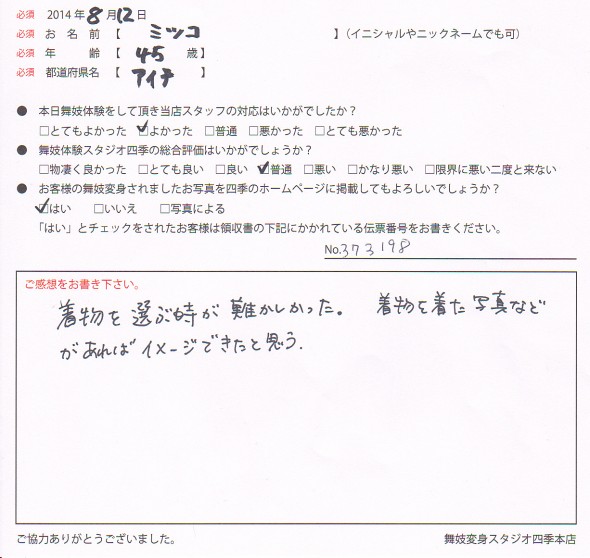 必須 2014年8月12日
必須 お名前【 ミツコ 】(イニシャルやニックネームでも可)
必須 年齢【 45 歳】
必須 都道府県名【 アイチ 】
● 本日舞妓体験をして頂き当店スタッフの対応はいかがでしたか?
□とてもよかった ☑よかった □普通 □悪かった □とても悪かった
● 舞妓体験スタジオ四季の総合評価はいかがでしょうか?
□物凄く良かった □とても良い □良い ☑普通 □悪い □かなり悪い □限界に悪い二度と来ない
● お客様の舞妓変身されましたお写真を四季のホームページに掲載してもよろしいでしょうか?
☑はい □いいえ □写真による
「はい」とチェックをされたお客様は領収書の下記にかかれている伝票番号をお書きください。
No.373198
ご感想をお書き下さい。
着物を選ぶ時が難かしかった。 着物を着た写真など
があればイメージできたと思う.
ご協力ありがとうございました。 舞妓変身スタジオ四季本店